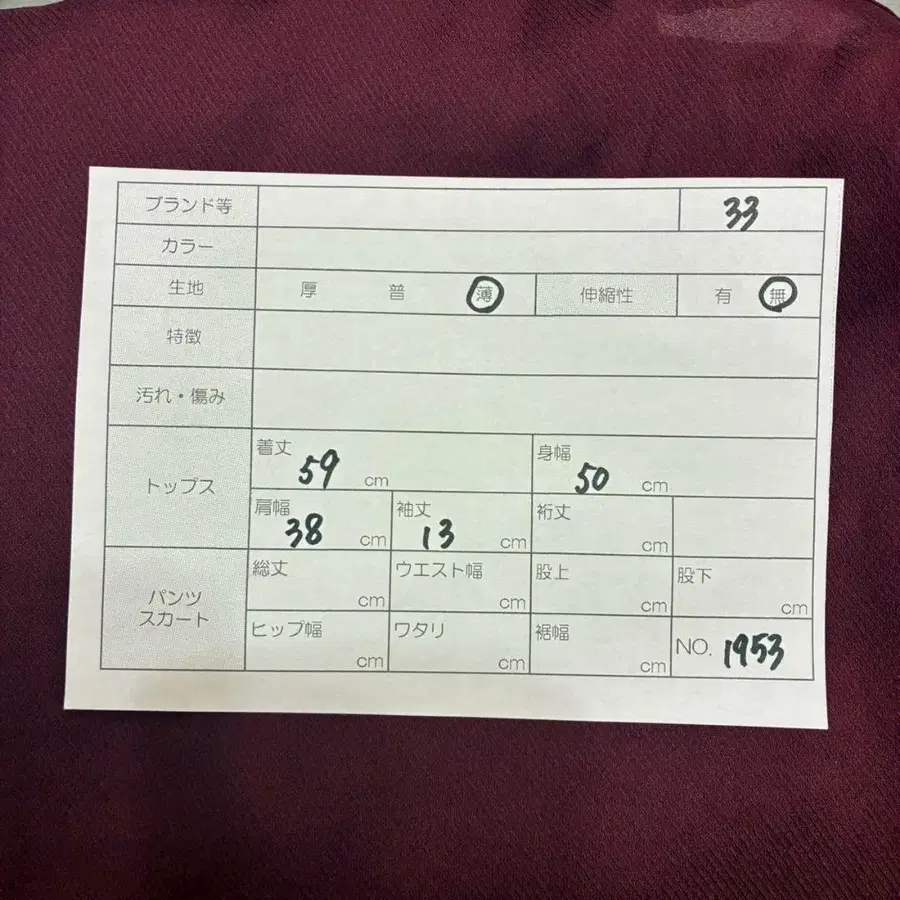 ブランド等 33
カラー
生地 厚 普 薄 伸縮性 有 無
特徴
汚れ・傷み
トップス
着丈 59 cm 身幅 50 cm
肩幅 38 cm 袖丈 13 cm 裄丈 cm
パンツ
スカート
総丈 cm ウエスト幅 cm 股上 cm 股下 cm
ヒップ幅 cm ワタリ cm 裾幅 cm NO. 1953